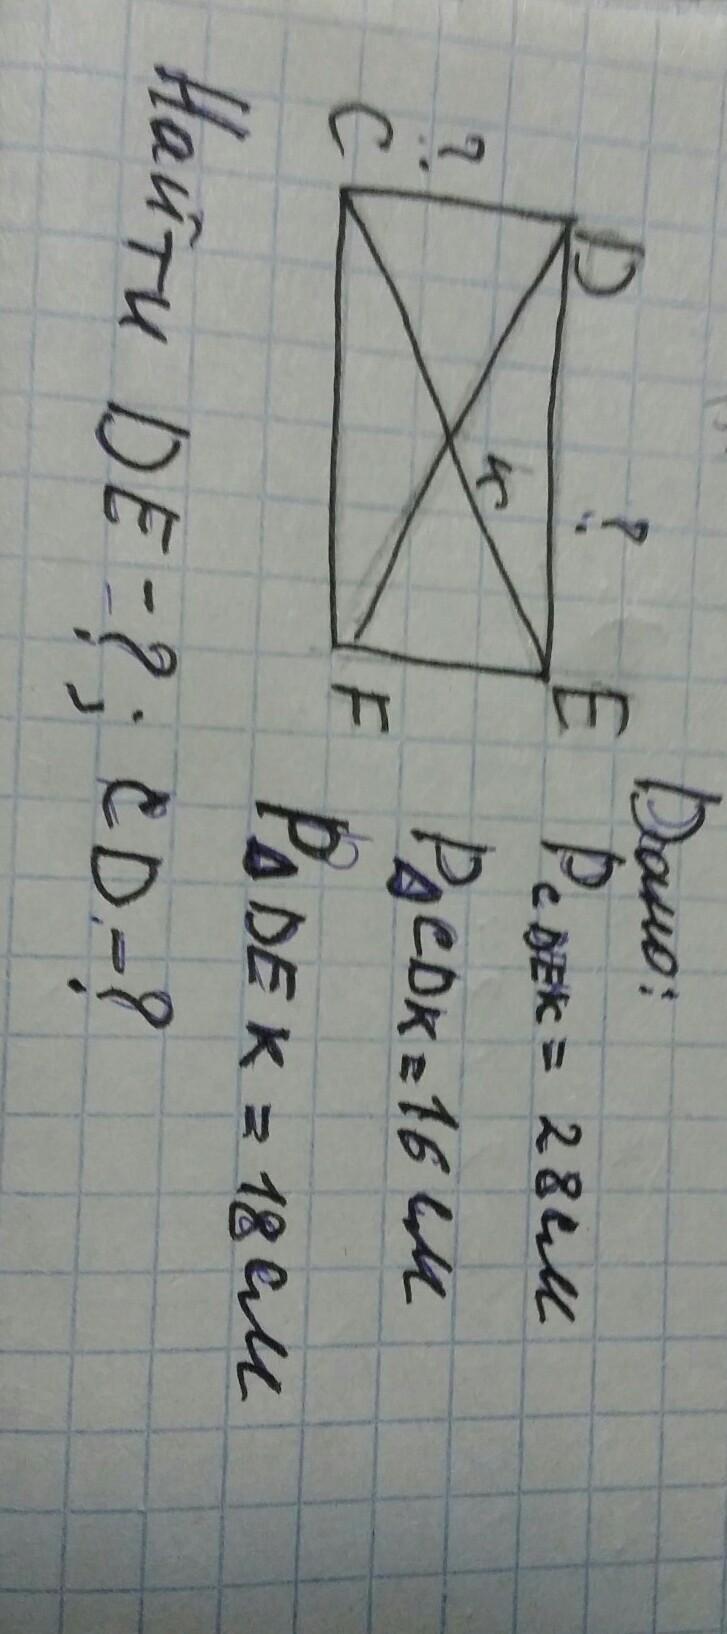 Дано:
P CDEK = 28 см
P Δ CDK = 16 см
P Δ DEK = 18 см
D
?
E
?
K
C
F
Найти DE - ?; CD - ?